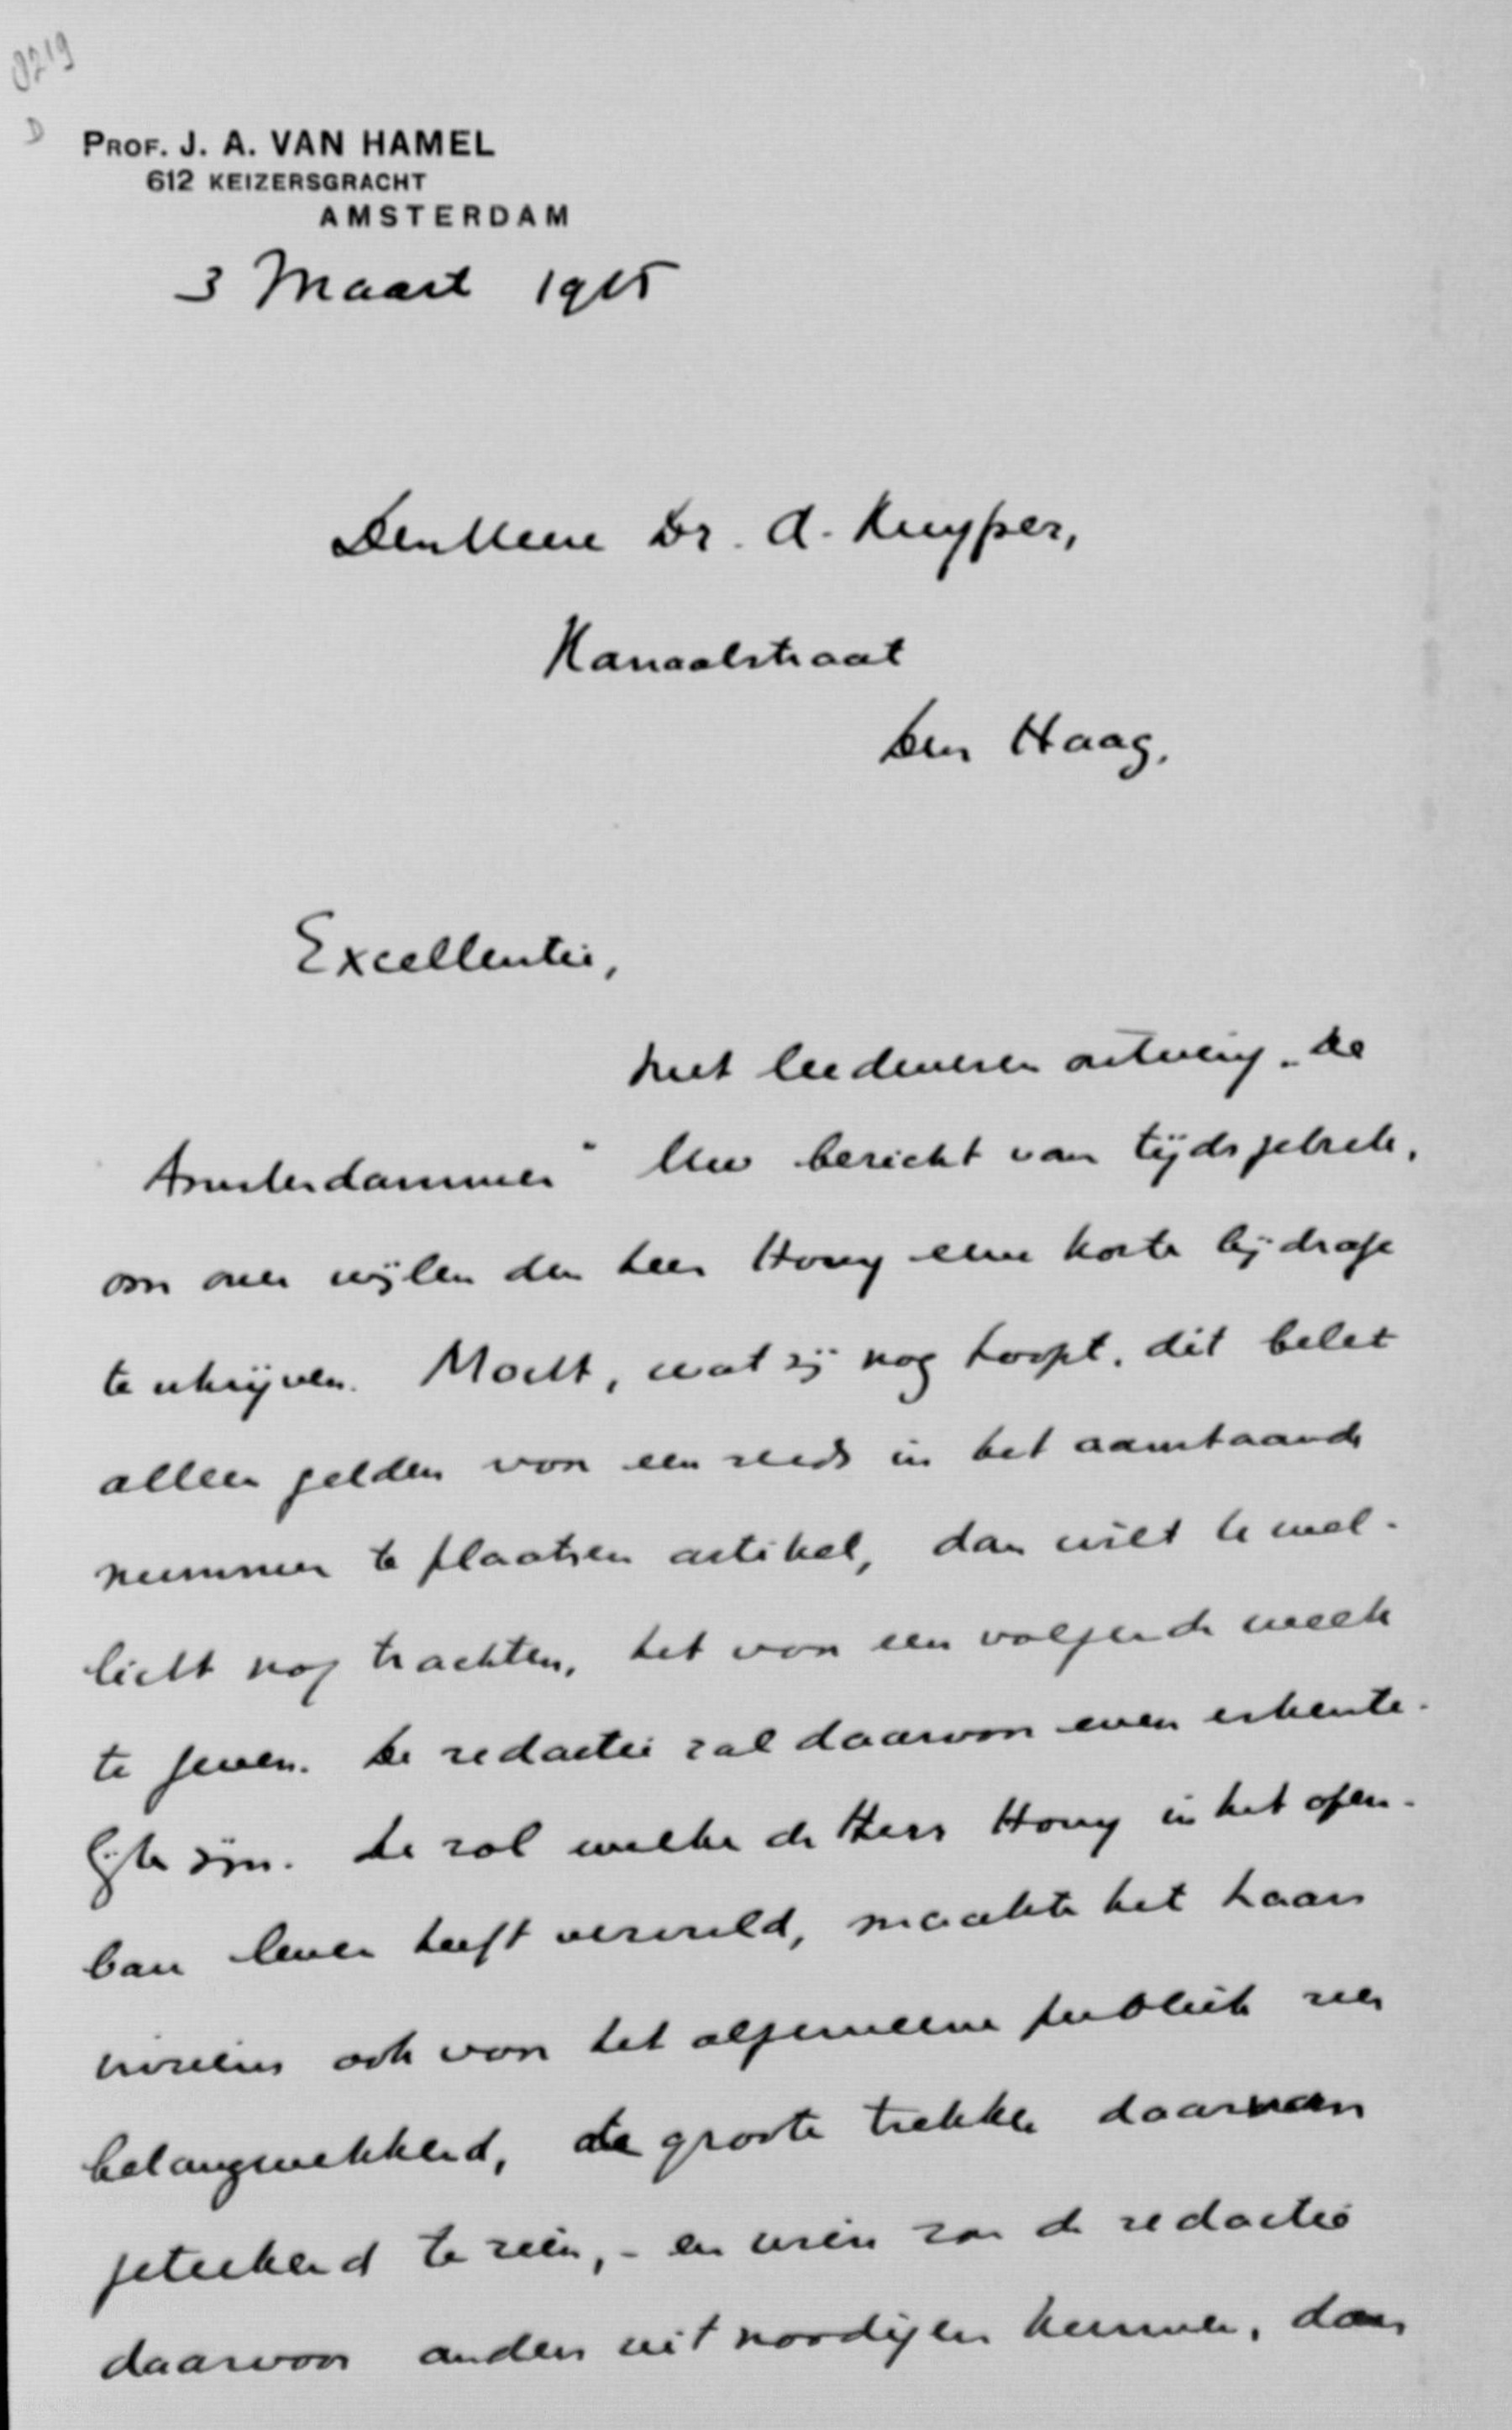 0219
D
PROF. J. A. VAN HAMEL
612 KEIZERSGRACHT
AMSTERDAM
3 Maart 1915
Den Heere Dr. A. Kuyper,
Kanaalstraat
Den Haag.
Excellentie,
Met leedwezen ontving „De
Amsterdammer" Uw bericht van tijdsgebrek,
om over wijlen den heer Hovy eene korte bijdrage
te schrijven. Mocht, wat zij nog hoopt, dit belet
alleen gelden voor een reeds in het aanstaande
nummer te plaatsen artikel, dan wilt U wel-
licht nog trachten, het voor een volgende week
te geven. De redactie zal daarvoor even erkente-
lijk zijn. De rol welke de Heer Hovy in het open-
baar leven heeft vervuld, maakte het haars
inziens ook voor het algemeene publiek zeer
belangwekkend, de groote trekken daarvan
geteekend te zien, - en wien zou de redactie
daarvoor anders uitnoodigen kunnen, dan